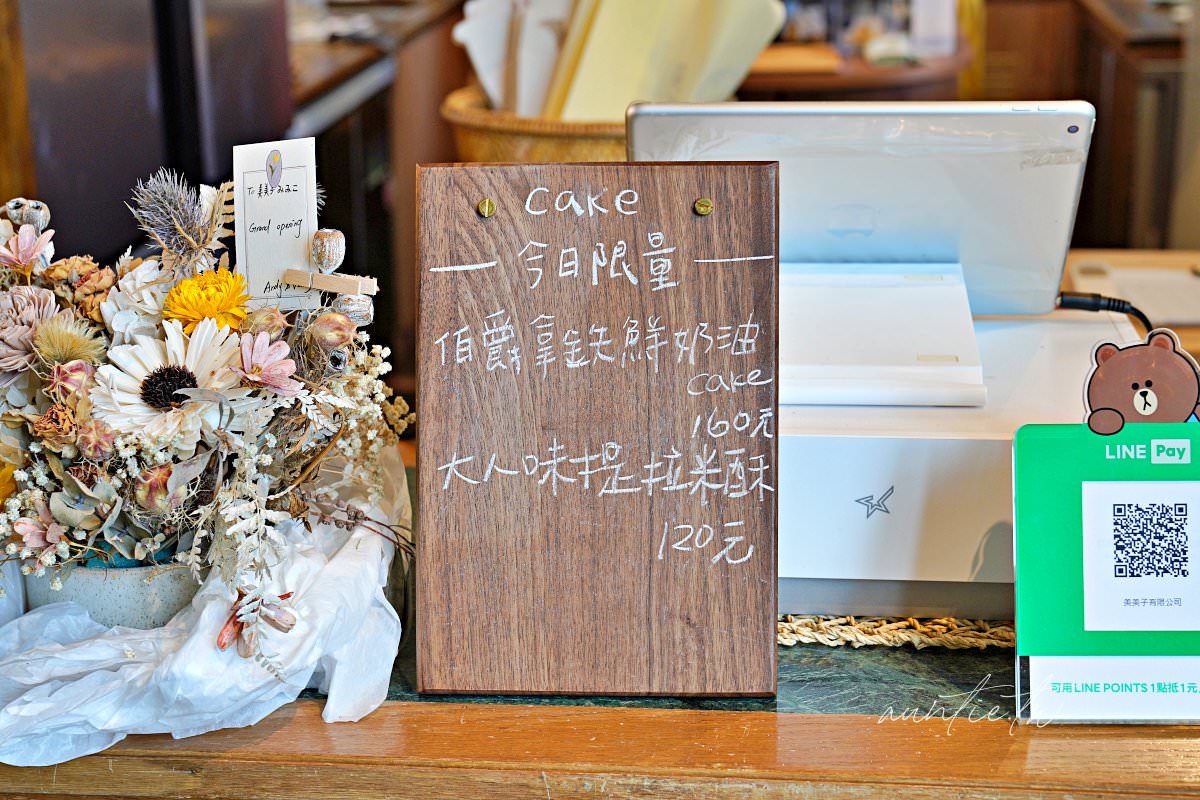 To 美美子みみこ
Grand opening
cake
今日限量
伯爵拿鐵鮮奶油
cake
160元
大人味提拉米酥
120元
LINE Pay
美美子有限公司
可用LINE POINTS 1點抵1元
auntie.tw